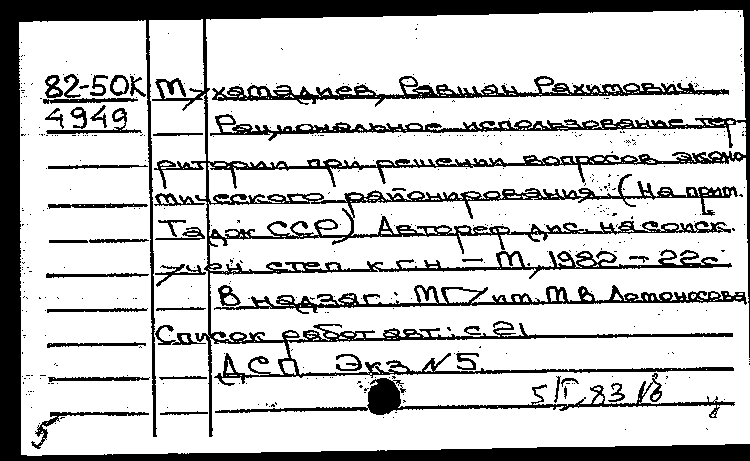 82-50К Мухамадиев, Равшан Рахимович
4949 Рациональное использование тер-
ритории при решении вопросов эконо
мического районирования: (На прим.
Тадж ССР) Автореф дис. на соиск.
учен. степ к.г.н – М, 1982 – 22с
В надзаг.: МГУ им. М В Ломоносова
Список работ авт.: с.21
ДСП. Экз №5.
5/I 83
5